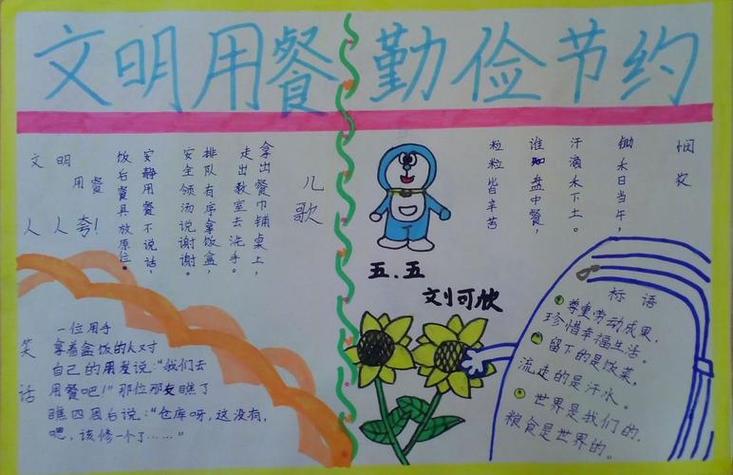 文明用餐
勤俭节约
儿歌
拿出餐巾铺桌上，
走出教室去洗手。
排队有序拿饭盒，
安全领汤说谢谢。
安静用餐不说话，
饭后餐具放原位。
文明
用餐
人人夸！
悯农
锄禾日当午，
汗滴禾下土。
谁知盘中餐，
粒粒皆辛苦
五．五
刘可欣
笑话
一位用手
拿着盒饭的人对
自己的朋友说：“我们去
用餐吧！”那位朋友瞧了
瞧四周后说：“仓库呀，这没有，
吧，该修一个了……”
标语
尊重劳动成果，
珍惜幸福生活。
留下的是饭菜，
流走的是汗水。
世界是我们的，
粮食是世界的。